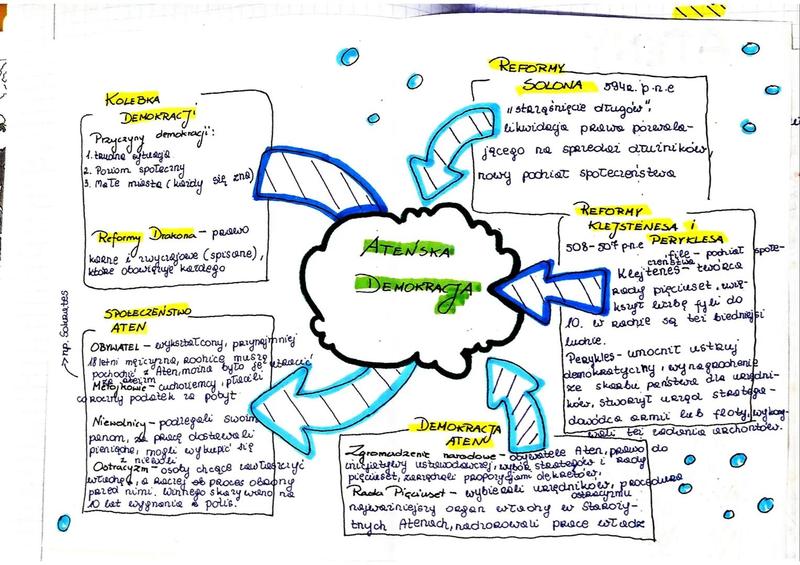 KOLEBKA
DEMOKRACJI
Przyczyny demokracji:
1. trudna sytuacja
2. Poziom społeczny
3. Małe miasta (każdy się zna)
Reformy Drakona - prawo
karne i zwyczajowe (spisane),
które obowiązuje każdego
REFORMY
SOLONA 594r. p.n.e
„strząśnięcie długów",
likwidacja prawa pozwala-
jącego na sprzedaż dłużników,
nowy podział społeczeństwa
ATEŃSKA
DEMOKRACJA
REFORMY
KLEJSTENESA i
PERYKLESA
508-507 p.n.e
file - podział społe-
czeństwa
Klejtenes - twórca
rady pięciuset, zwię-
kszył liczbę fyli do
10. w radzie są też biedniejsi
ludzie.
Perykles - umocnił ustrój
demokratyczny, wynagrodzenie
ze skarbu państwa dla urzędni-
ków, stworzył urząd stratega-
dowódca armii lub floty, wykony-
wali też zadania archontów.
SPOŁECZEŃSTWO
ATEN
OBYWATEL - wykształcony, przynajmniej
18 letni mężczyzna, rodzice muszą
pochodzić z Aten, można było je utracić
→ np. Sokrates
Metojkowie - cudzoziemcy, płacili
coroczny podatek za pobyt
Niewolnicy - podlegali swoim
panom, za pracę dostawali
pieniądze, mogli wykupić się
z niewoli
Ostracyzm - osoby chcące zawłaszczyć
władzę, a raczej ob proces obrony
przed nimi. Winnego skazywano na
10 lat wygnania z polis.
DEMOKRACJA
ATEN
Zgromadzenie narodowe - obywatele Aten, prawo do
inicjatywy ustawodawczej, wybór strategów i rady
pięciuset, zarządzali propozycjami dekretów.
Rada Pięciuset - wybierali urzędników, procedura
ostracyzmu
najważniejszy organ władzy w Staroży-
tnych Atenach, nadzorowali pracę władz